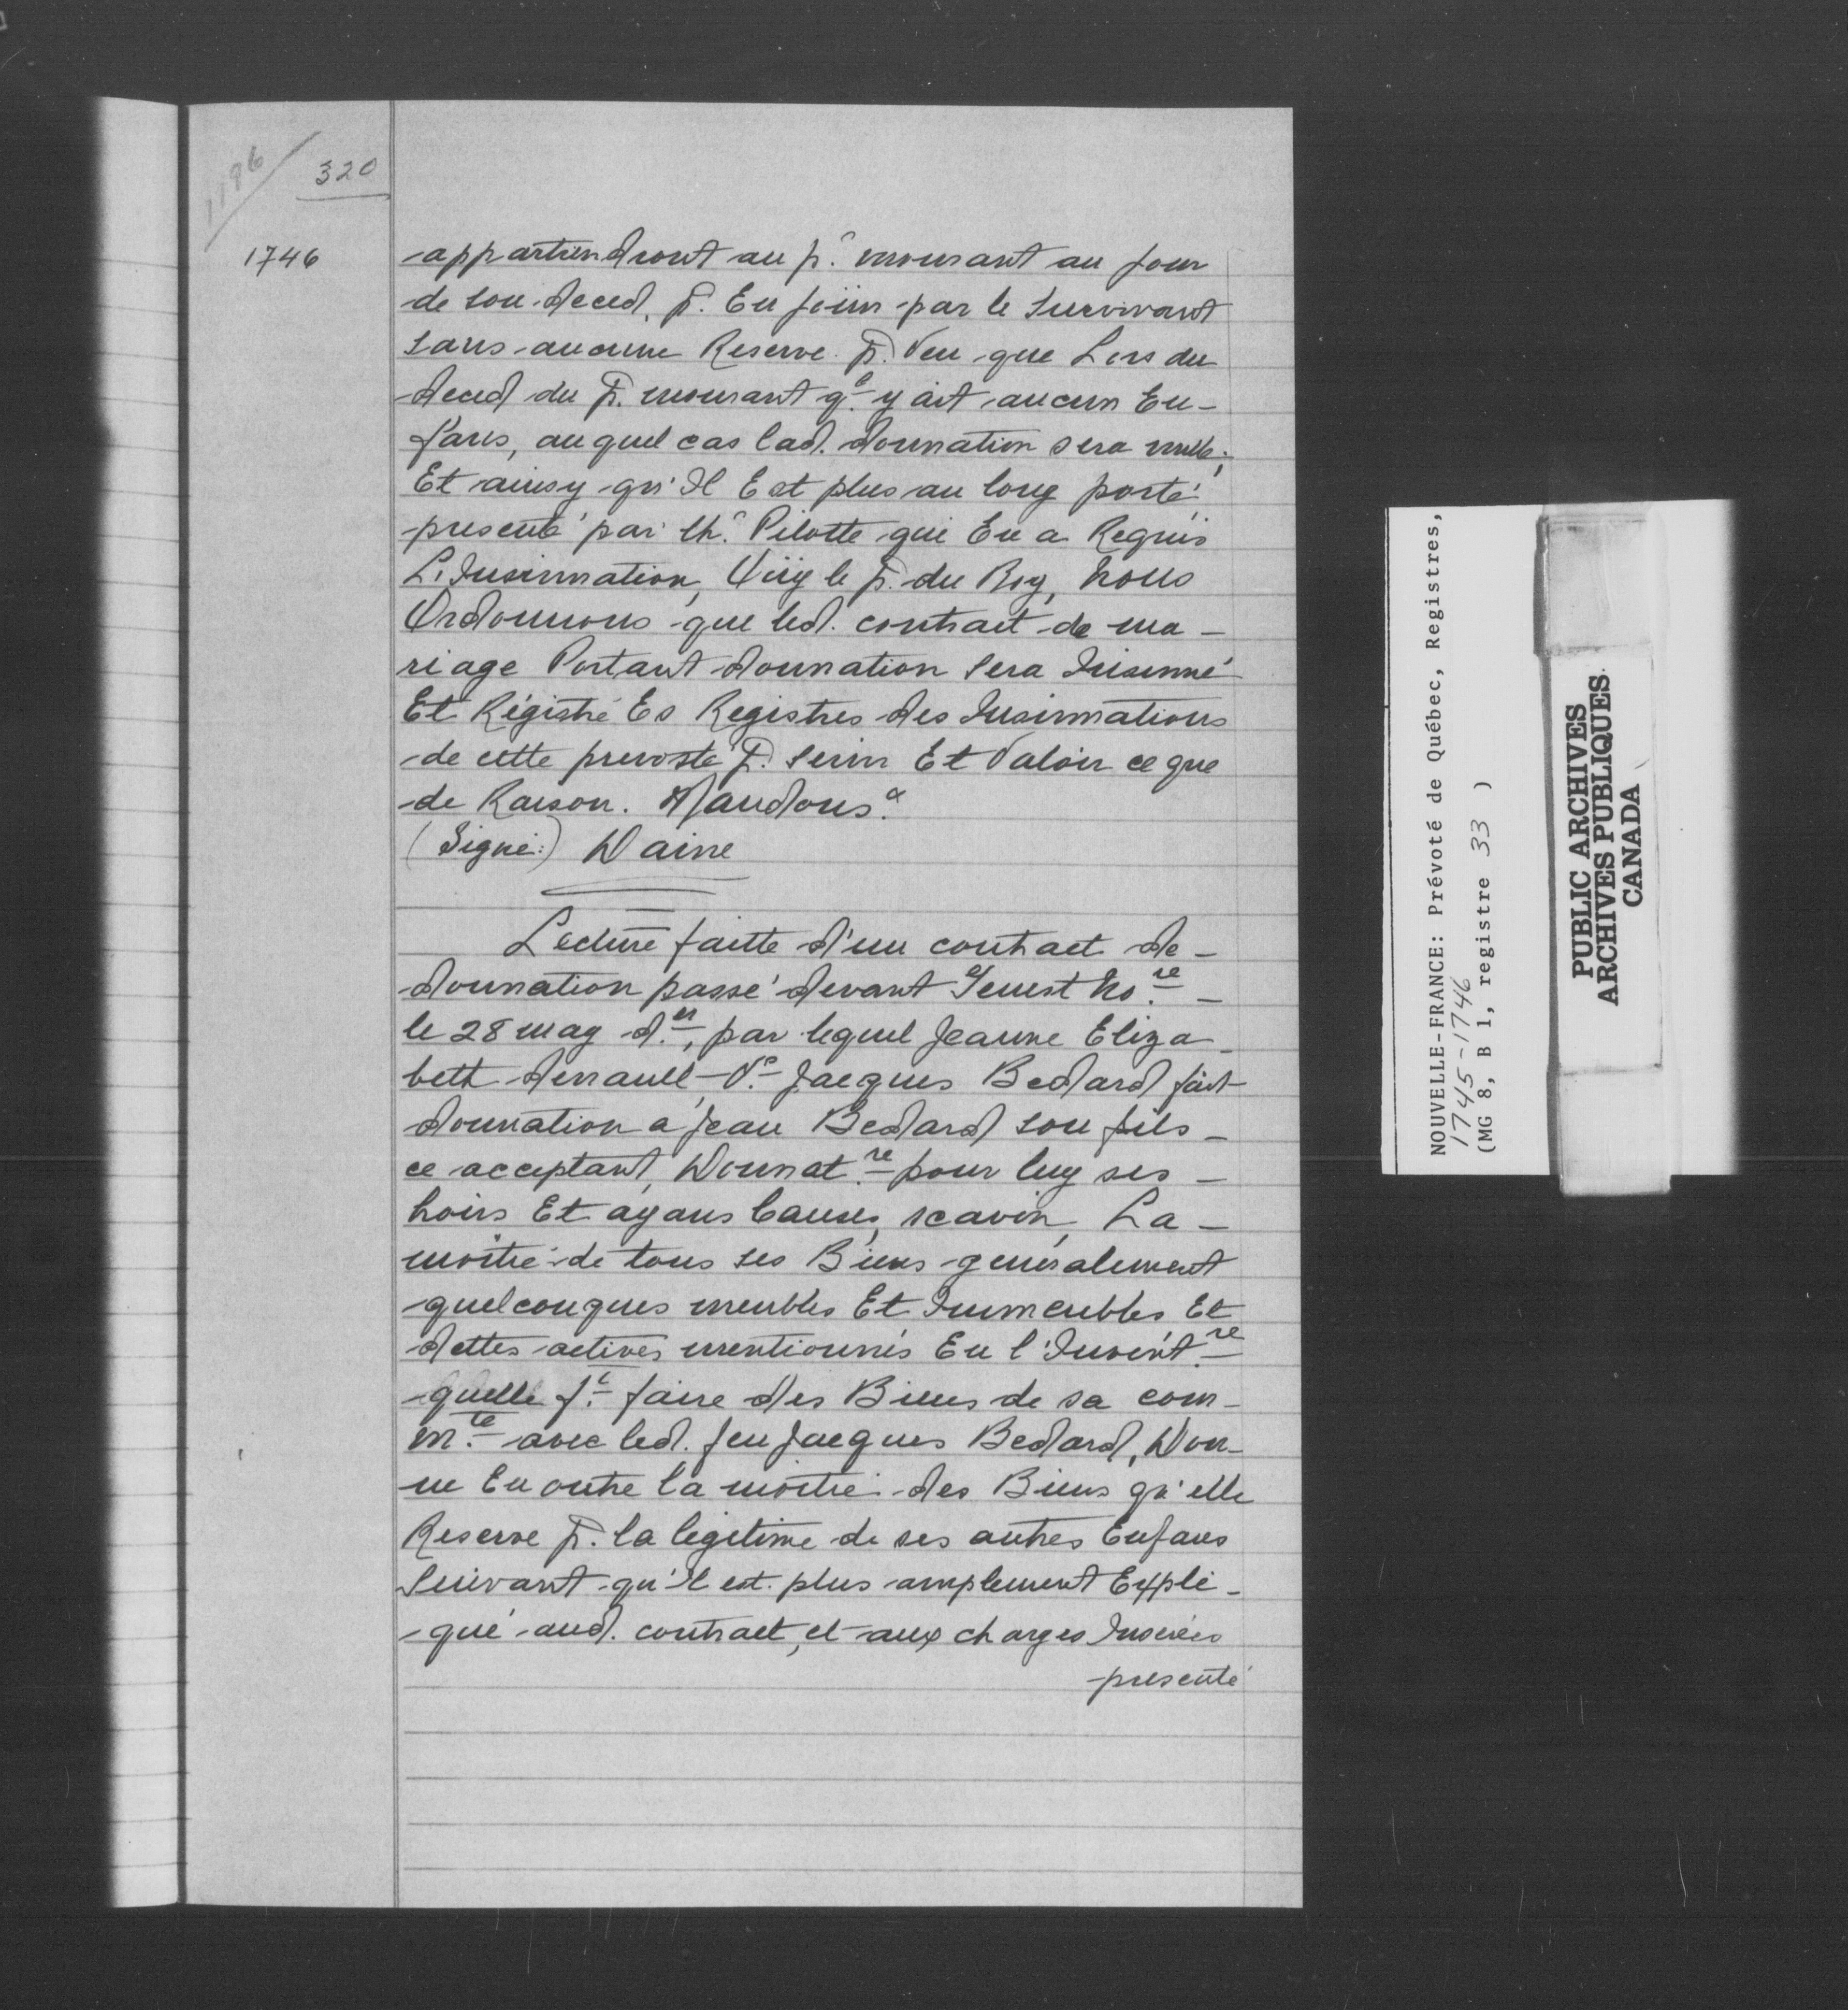 1196
320
1746
appartiendront au p.r mourant au jour
de son deced, P. En joüir par le Survivant
sans aucune Reserve P. Veu que Lors du
deced du P. mourant q.l y ait aucun En-
fans, auquel cas lad. donnation sera nulle;
Et ainsy qu'Il Est plus au long porté
presenté par Ch.s Pilotte qui En a Requis
L'Insinuation, Oüy le P. du Roy, Nous
Ordonnons que led. contrait de ma-
riage Portant donnation Sera Insinué
Et Régistré Es Registres des Insinuations
de cette prevosté P. Servir Et Valoir ce que
de Raison. Mandons &
(Signé:) Daine
Lecture faitte d'un contract de-
donnation passé devant Genest No.re -
le 28 may d.er, par lequel Jeanne Eliza-
beth Derrault V.e Jacques Bedard fait
donnation a Jean Bedard son fils-
ce acceptant, Donnat.re pour luy ses-
hoirs Et ayans Causes, scavoir, La-
moitié de tous ses Biens generalement
quelconques meubles Et Immeubles Et
dettes actives mentionnés En l'Invent.re
quelle f.t faire des Biens de sa com-
m.té avec led. feu Jacques Bedard, Don-
ne En outre la moitié des Biens qu'elle
Reserve P. la legitime de ses autres Enfans
Suivant qu'il est plus amplement Expli-
qué aud. contract, et aux charges Inserées
presenté
NOUVELLE-FRANCE: Prévoté de Québec, Registres,
1745-1746
(MG 8, B 1, registre 33 )
PUBLIC ARCHIVES
ARCHIVES PUBLIQUES
CANADA